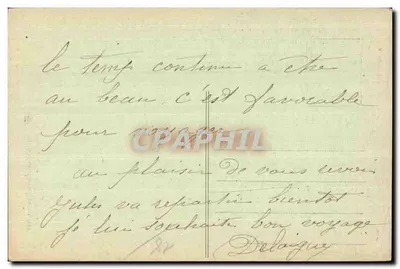 le temp continu a être
au beau c'est favorable
pour voyager
CPAPHIL
au plaisir de vous revoir
Jules va repartir bientot
je lui souhaite bon voyage
Delaigue